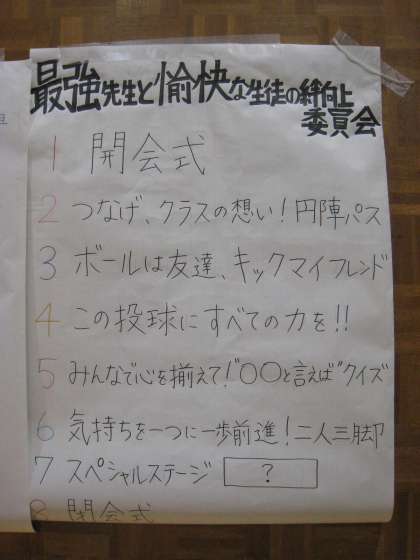 最強先生と愉快な生徒の絆向上
委員会
1 開会式
2 つなげ、クラスの想い!円陣パス
3 ボールは友達、キックマイフレンド
4 この投球にすべての力を!!
5 みんなで心を揃えて!"〇〇と言えば"クイズ
6 気持ちを一つに一歩前進!二人三脚
7 スペシャルステージ ?
8 閉会式